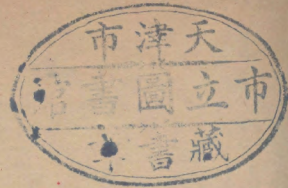 天津市
市立圖書
藏書章